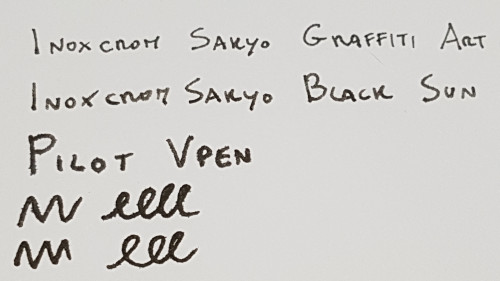 Inoxcrom Sakyo Graffiti Art
Inoxcrom Sakyo Black Sun
Pilot Vpen